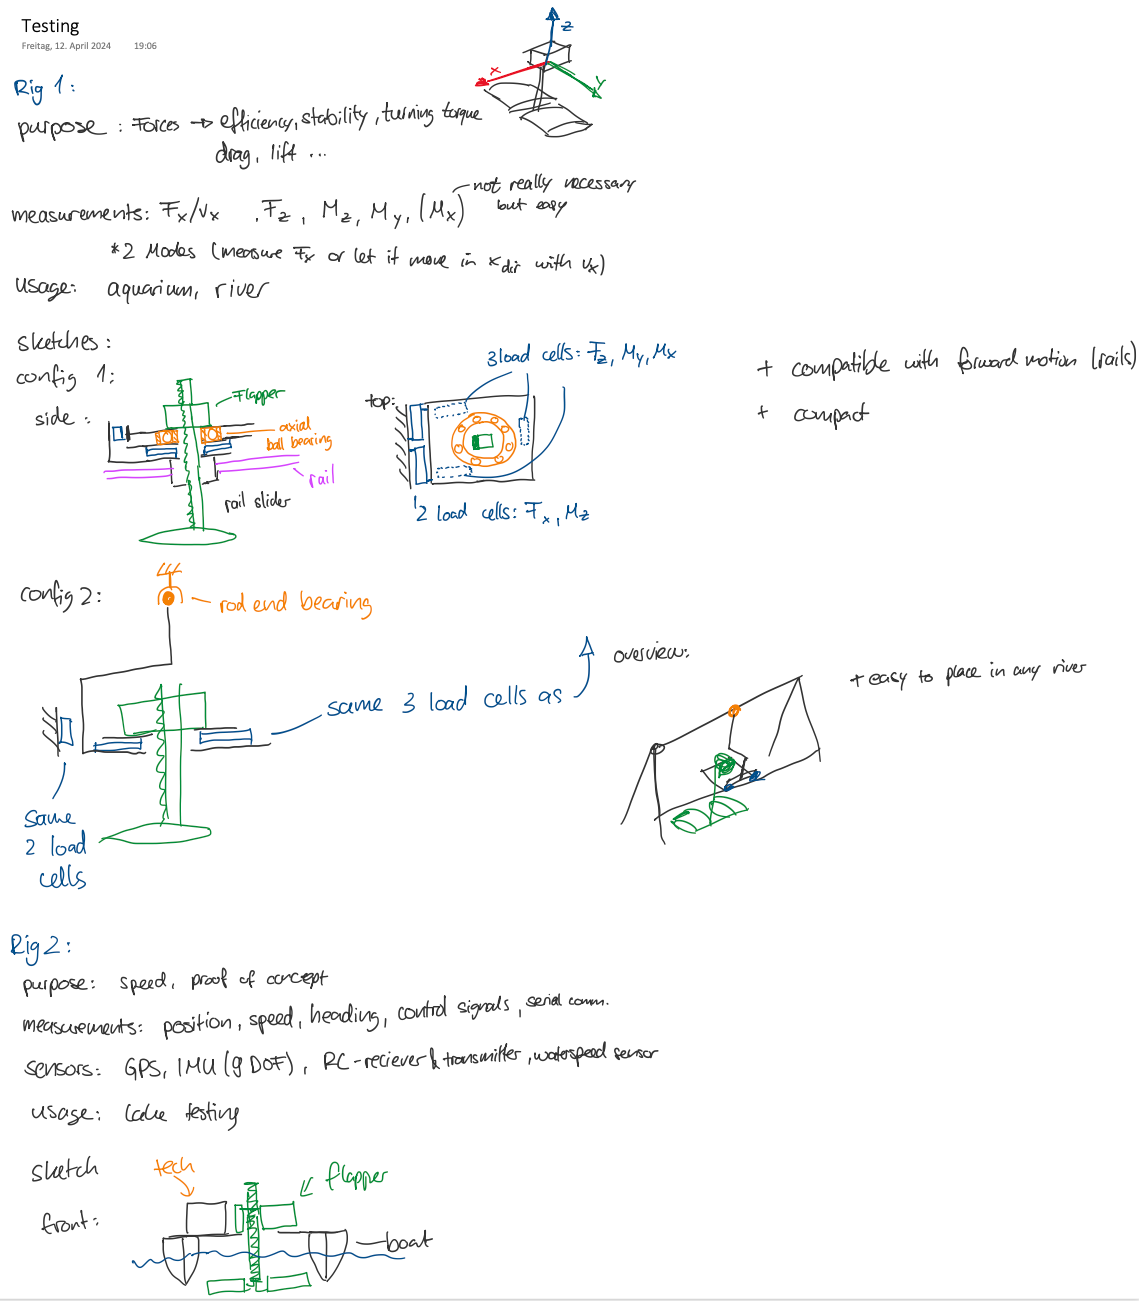 Testing
Freitag, 12. April 2024 19:06
z
x
y
Rig 1:
purpose : Forces → efficiency, stability, turning torque
drag, lift ...
measurements: Fx/vx , Fz, Mz, My, (Mx)
not really necessary
but easy
*2 Modes (measure Fx or let it move in xdir with vx)
usage: aquarium, river
sketches:
config 1:
side:
Flapper
axial
ball bearing
rail
rail slider
top:
3 load cells: Fz, My, Mx
2 load cells: Fx, Mz
+ compatible with forward motion (rails)
+ compact
config 2:
rod end bearing
same 3 load cells as
same
2 load
cells
overview:
+ easy to place in any river
Rig 2:
purpose: speed, proof of concept
measurements: position, speed, heading, control signals, serial comm.
sensors: GPS, IMU (9 DOF), RC-reciever & transmitter, waterspeed sensor
usage: lake testing
sketch
front:
tech
flapper
boat